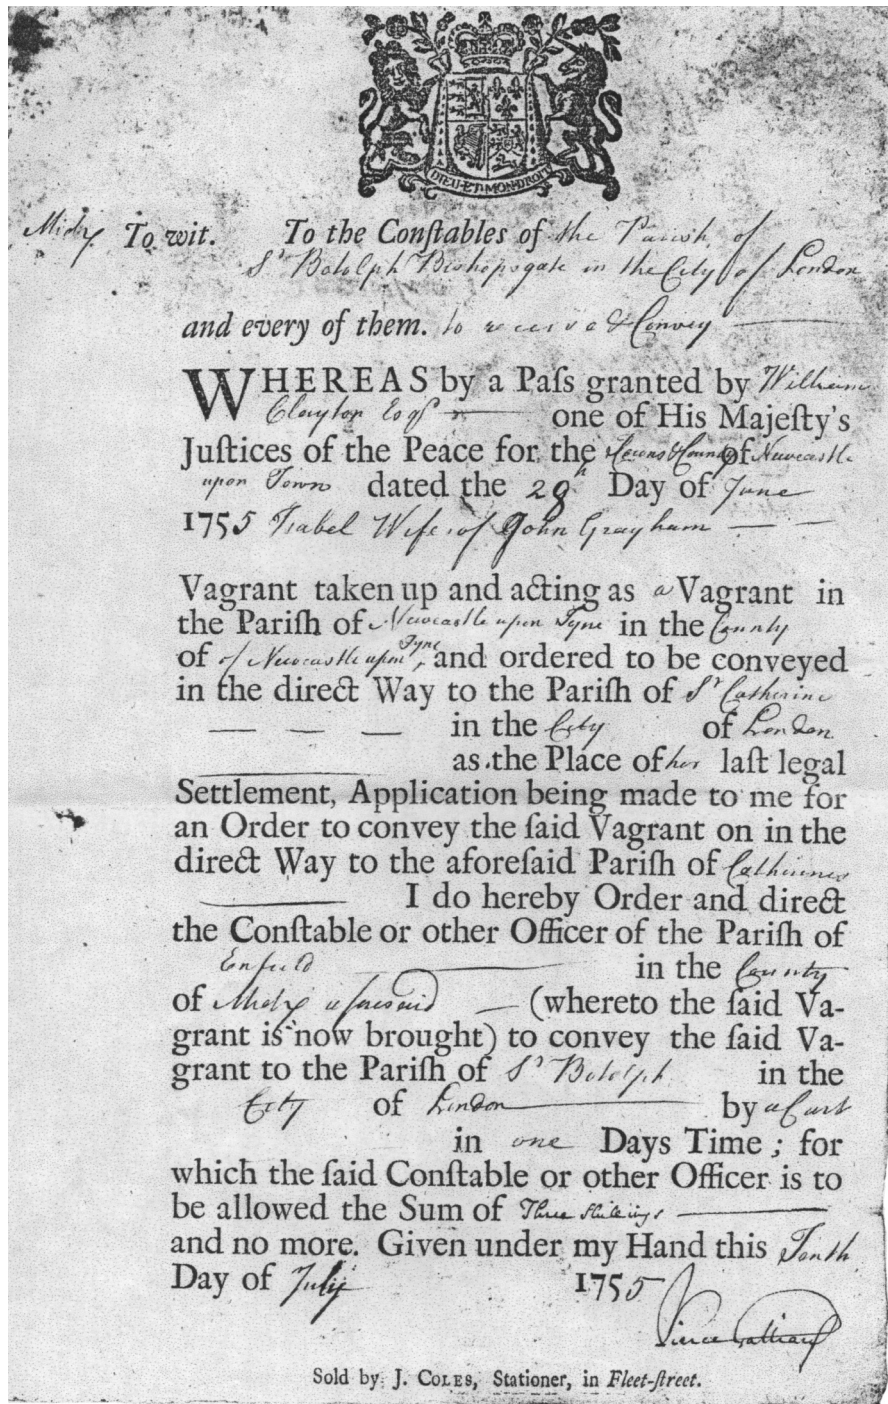 DIEU·ET·MON·DROIT
Midx To wit. To the Conſtables of the Parish of
St Botolph Bishopsgate in the City of London
and every of them. to receive & Convey
WHEREAS by a Paſs granted by William
Clayton Esqr one of His Majeſty's
Juſtices of the Peace for the Town & County of Newcastle
upon Town dated the 28th Day of June
1755 Isabel Wife of John Grayham
Vagrant taken up and acting as a Vagrant in
the Pariſh of Newcastle upon Tyne in the County
of of Newcastle upon Tyne, and ordered to be conveyed
in the direct Way to the Pariſh of St Catherine
in the City of London
as the Place of her laſt legal
Settlement, Application being made to me for
an Order to convey the ſaid Vagrant on in the
direct Way to the aforeſaid Pariſh of Catherines
I do hereby Order and direct
the Conſtable or other Officer of the Pariſh of
Enfield in the County
of Midx aforesaid (whereto the ſaid Va-
grant is now brought) to convey the ſaid Va-
grant to the Pariſh of St Botolph in the
City of London by a Cart
in one Days Time; for
which the ſaid Conſtable or other Officer is to
be allowed the Sum of Three shillings
and no more. Given under my Hand this Tenth
Day of July 1755
Sold by J. COLES, Stationer, in Fleet-ſtreet.